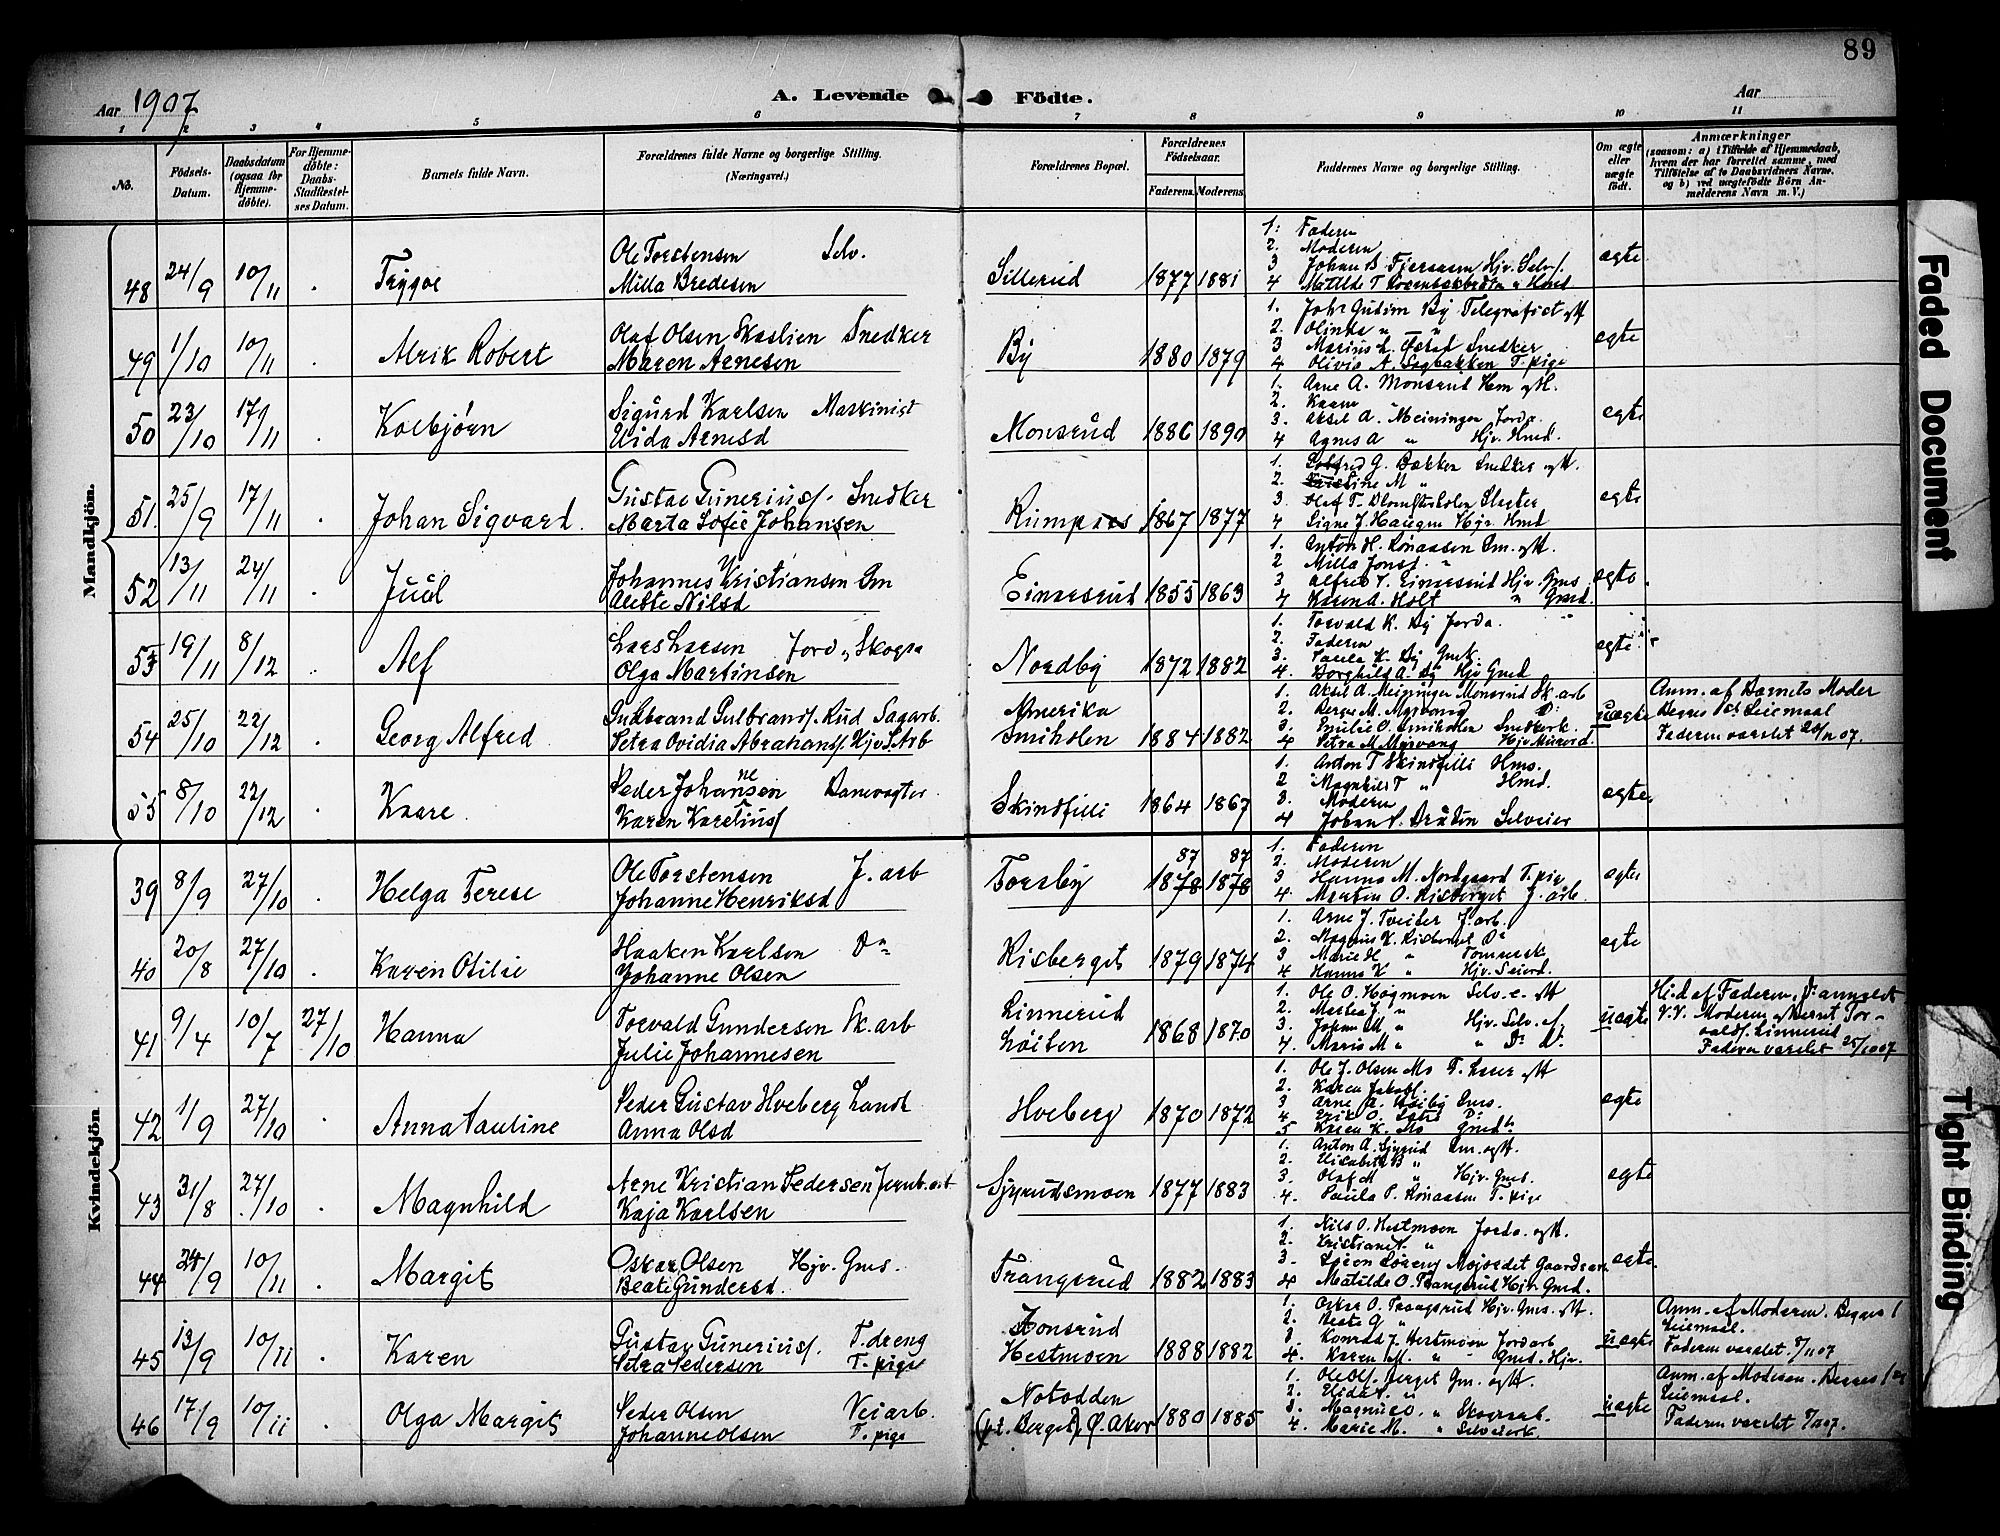 89
Aar 1907
A. Levende Födte.
Aar
1 2 3 4 5 6 7 8 9 10 11
No.
Födsels-Datum.
Daabsdatum (ogsaa for Hjemmedöbte).
For Hjemmedöbte: Daabs-Stadfæstelses Datum.
Barnets fulde Navn.
Forældrenes fulde Navne og borgerlige Stilling. (Næringsvei.)
Forældrenes Bopæl.
Forældrenes Födselsaar.
Faderens. Moderens.
Faddernes Navne og borgerlige Stilling.
Om ægte eller uægte födt.
Anmærkninger
(saasom: a) i Tilfælde af Hjemmedaab, hvem der har forrettet samme, med Tilföielse af to Daabsvidners Navne, og b) ved uægtefödte Börn Anmelderens Navn m. V.)
Mandkjön.
48 24/9 10/11 Trygve
Ole Torstensen Selv.
Milla Bredesen
Sillerud 1877 1881
1. Faderen
2. Moderen
3 Johan B. Hjv. Selv.
4 Matilde T
ægte
49 1/10 10/11 Alrik Robert
Olaf Olsen Skaslien Snedker
Maren Arnesen
By 1880 1879
1. Johs Gudim By Telegrafist
2. Olinda " "
3 Marius L. Snedker
4 Olivia A. Sagbakken T. pige
ægte
50 23/10 17/11 Kolbjørn
Sigurd Karlsen Maskinist
Uida Arnesd
Monsrud 1886 1890
1. Arne A. Monsrud
2. Kaam
3. Aksel A. Meininger Jorda.
4 Agnes A " Hjv. Hmd.
ægte
51. 25/9 17/11 Johan Sigvard.
Gustav Guneriusf. Snedker
Marta Sofie Johansen
Rumpæs 1867 1877
1. G. Bakken Snedker
2. Kristine M "
3. Olaf T. Slagter
4. Signe J. Haugen Hjv. Hmd
ægte
52 13/11 24/11 Juul
Johannes Kristiansen Gm
Alette Nilsd
Einersrud 1855 1863
1. Anton H. Rønaasen Gm.
2 Milla Jonsf. "
3 Alfred T. Einersrud Hjv. Gms
4 Karen A. Holt " Gmd.
ægte
53 19/11 8/12 Alf
Lars Larsen Jord & Skogsa
Olga Martinsen
Nordby 1872 1882
1. Torvald K. By Jorda.
2. Faderen
3. Paula K. By Gmk.
4. Borghild A. By Hjv Gmd
ægte
54 25/10 22/12 Georg Alfred
Gudbrand Gulbrandsf. Rud Sagarb.
Petra Ovidia Abrahamsf Hjv S. Arb
Amerika
Smiholen 1884 1882
1. Aksel A. Meininger Monsrud Sk. arb
2. Berger M. Myrvang Do
3. Emilie O. Smiholen Snedkerk.
4. Petra M. Myrvang Hjv. Murerd.
uægte
Anm. af Barnets Moder
Begges 1st Leiemaal
Faderen varslet
55 8/10 22/12 Kaare
Peder Johannesen Banevogter
Karen Kareliusf
Skindfilli 1864 1867
1. Anton T Skindfilli Hms.
2 Magnhild T " Hmd.
3. Moderen
4 Johan Selveier
ægte
Kvindekjön
39 8/9 27/10 Helga Terese
Ole Torstensen J. arb
Johanne Henriksd
Torsby 87 87 1878 1878
1. Faderen
2. Moderen
3 Hanna M. Nordgaard T. pige
4. Morten O. Risberget J. arb.
ægte
40 20/8 27/10 Karen Otilie
Haaken Karlsen Do
Johanne Olsen
Risberget 1879 1874
1. Arne J. Tveiter J. arb.
2. Magnus K. Risberget Do
3 Marie H "
4 Hanna K " Hjv. Seierd.
ægte
41 9/4 10/7 27/10 Hanna
Torvald Gundersen Sk. arb
Julie Johannesen
Linnerud
Løiten 1868 1870
1. Ole O. Høgmoen Selv. e.
2. Marthea J. "
3. Johan M. " Hjv. Selv. f
4. Marie M " " Do Do
uægte
Hj. d af Faderen. anmeldt
V.V. Moderen
Linnerud
Faderen varslet 25/10 07
42 1/9 27/10 Anna Pauline
Peder Gustav Hveberg Landh
Anna Olsd
Hveberg 1870 1872
1. Ole J. Olsen Mo
2. Karen Jakobf.
3 Arne A. Høiby Gms.
4 Erik O. Do
5 Karen K. Mo Gmd
ægte
43 31/8 27/10 Magnhild
Arne Kristian Pedersen Jernb. arb
Kaja Karlsen
Sjyrudsmoen 1877 1883
1. Anton A. Sjyrud Gm.
2. Elisabeth B "
3. Olaf M " Hjv. Gms.
4. Paula P. Rønaasen T. pige
ægte
44 24/9 10/11 Margit
Oskar Olsen Hjv. Gms.
Beate Gundersd.
Trangsrud 1882 1883
1. Nils O. Hestmoen Jorda.
2. Kristiane K. "
3. Løreng
4 Matilde O. Trangsrud Hjv. Gmd.
ægte
45 13/9 10/11 Karen
Gustav Guneriusf. T. dreng
Petra Pedersen T. pige
Zonsrud
Hestmoen 1888 1882
1. Oskar O. Trangsrud Hjv. Gms.
2. Beate G "
3 Konrad J Hestmoen Jordarb
4. Karen M. " Gmd. Hjv.
uægte
Anm. af Moderen. Begges 1
Leiemaal.
Faderen varslet 8/11 07
46 17/9 10/11 Olga Margit
Peder Olsen Veiarb.
Johanne Olsen T. pige
Notodden
Berget Ø. Aker 1880 1885
1. Ole Ols. Berget Gm.
2. Elida K. "
3. Magnus O. " Skogsarb.
4. Marie M. "
uægte
Anm. af Moderen. Begges 1st
Leiemaal.
Faderen varslet
Faded Document
Tight Binding